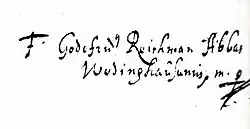 F. Godefrid⁹ Reichman Abbas
Wedinghausanus, m. p